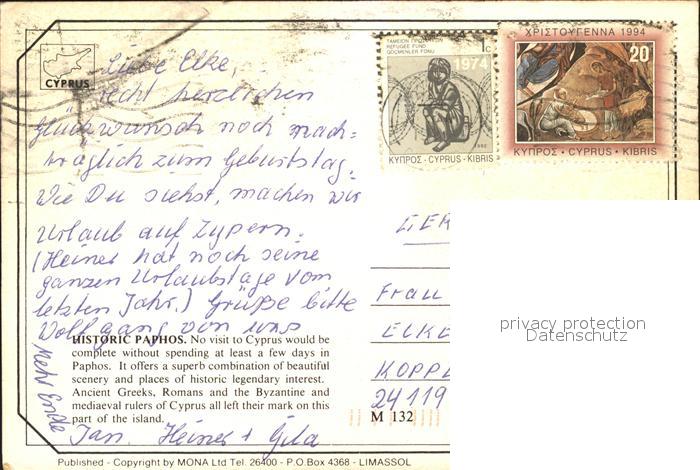 CYPRUS
Liebe Elke,
recht herzlichen
Glückwunsch noch nach=
träglich zum Geburtstag.
Wie Du siehst, machen wir
Urlaub auf Zypern.
(Heiner hat noch seine
ganzen Urlaubstage vom
letzten Jahr.) Grüße bitte
Wolfgang von uns
Ende Jan. Heiner + Gila
HISTORIC PAPHOS. No visit to Cyprus would be
complete without spending at least a few days in
Paphos. It offers a superb combination of beautiful
scenery and places of historic legendary interest.
Ancient Greeks, Romans and the Byzantine and
mediaeval rulers of Cyprus all left their mark on this
part of the island.
M 132
Published - Copyright by MONA Ltd Tel. 26400 - P.O.Box 4368 - LIMASSOL
REFUGEE FUND
GÖÇMENLER FONU
1c
1974
ΚΥΠΡΟΣ - CYPRUS - KIBRIS
ΧΡΙΣΤΟΥΓΕΝΝΑ 1994
20
ΚΥΠΡΟΣ • CYPRUS • KIBRIS
GER
Frau
ELKE
KOPPL
24119
privacy protection
Datenschutz